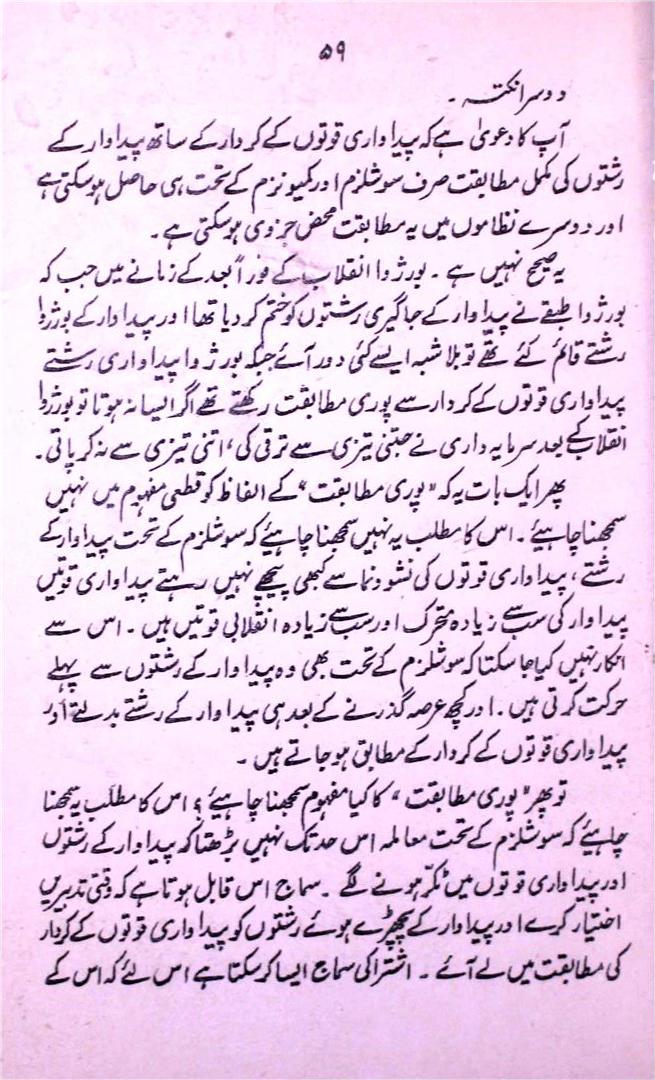 ۵۹
دوسرا نکتہ۔
آپ کا دعویٰ ہے کہ پیداواری قوتوں کے کردار کے ساتھ پیداوار کے
رشتوں کی مکمل مطابقت صرف سوشلزم اور کمیونزم کے تحت ہی حاصل ہو سکتی ہے
اور دوسرے نظاموں میں یہ مطابقت محض جزوی ہو سکتی ہے۔
یہ صحیح نہیں ہے۔ بورژوا انقلاب کے فوراً بعد کے زمانے میں جب کہ
بورژوا طبقے نے پیداوار کے جاگیری رشتوں کو ختم کر دیا تھا اور پیداوار کے بورژوا
رشتے قائم کئے تھے تو بلا شبہ ایسے کئی دور آئے جبکہ بورژوا پیداواری رشتے
پیداواری قوتوں کے کردار سے پوری مطابقت رکھتے تھے اگر ایسا نہ ہوتا تو بورژوا
انقلاب کے بعد سرمایہ داری نے جتنی تیزی سے ترقی کی، اتنی تیزی سے نہ کر پاتی۔
پھر ایک بات یہ کہ "پوری مطابقت" کے الفاظ کو قطعی مفہوم میں نہیں
سمجھنا چاہیئے۔ اس کا مطلب یہ نہیں سمجھنا چاہیئے کہ سوشلزم کے تحت پیداوار کے
رشتے، پیداواری قوتوں کی نشوونما سے کبھی پیچھے نہیں رہتے پیداواری قوتیں
پیداوار کی سب سے زیادہ متحرک اور سب سے زیادہ انقلابی قوتیں ہیں۔ اس سے
انکار نہیں کیا جا سکتا کہ سوشلزم کے تحت بھی وہ پیداوار کے رشتوں سے پہلے
حرکت کرتی ہیں۔ اور کچھ عرصہ گذرنے کے بعد ہی پیداوار کے رشتے بدلتے اور
پیداواری قوتوں کے کردار کے مطابق ہو جاتے ہیں۔
تو پھر "پوری مطابقت" کا کیا مفہوم سمجھنا چاہیئے؟ اس کا مطلب یہ سمجھنا
چاہیئے کہ سوشلزم کے تحت معاملہ اس حد تک نہیں بڑھتا کہ پیداوار کے رشتوں
اور پیداواری قوتوں میں ٹکر ہونے لگے۔ سماج اس قابل ہوتا ہے کہ وقتی تدبیریں
اختیار کرے اور پیداوار کے پچھڑے ہوئے رشتوں کو پیداواری قوتوں کے کردار
کی مطابقت میں لے آئے۔ اشتراکی سماج ایسا کر سکتا ہے اس لئے کہ اس کے